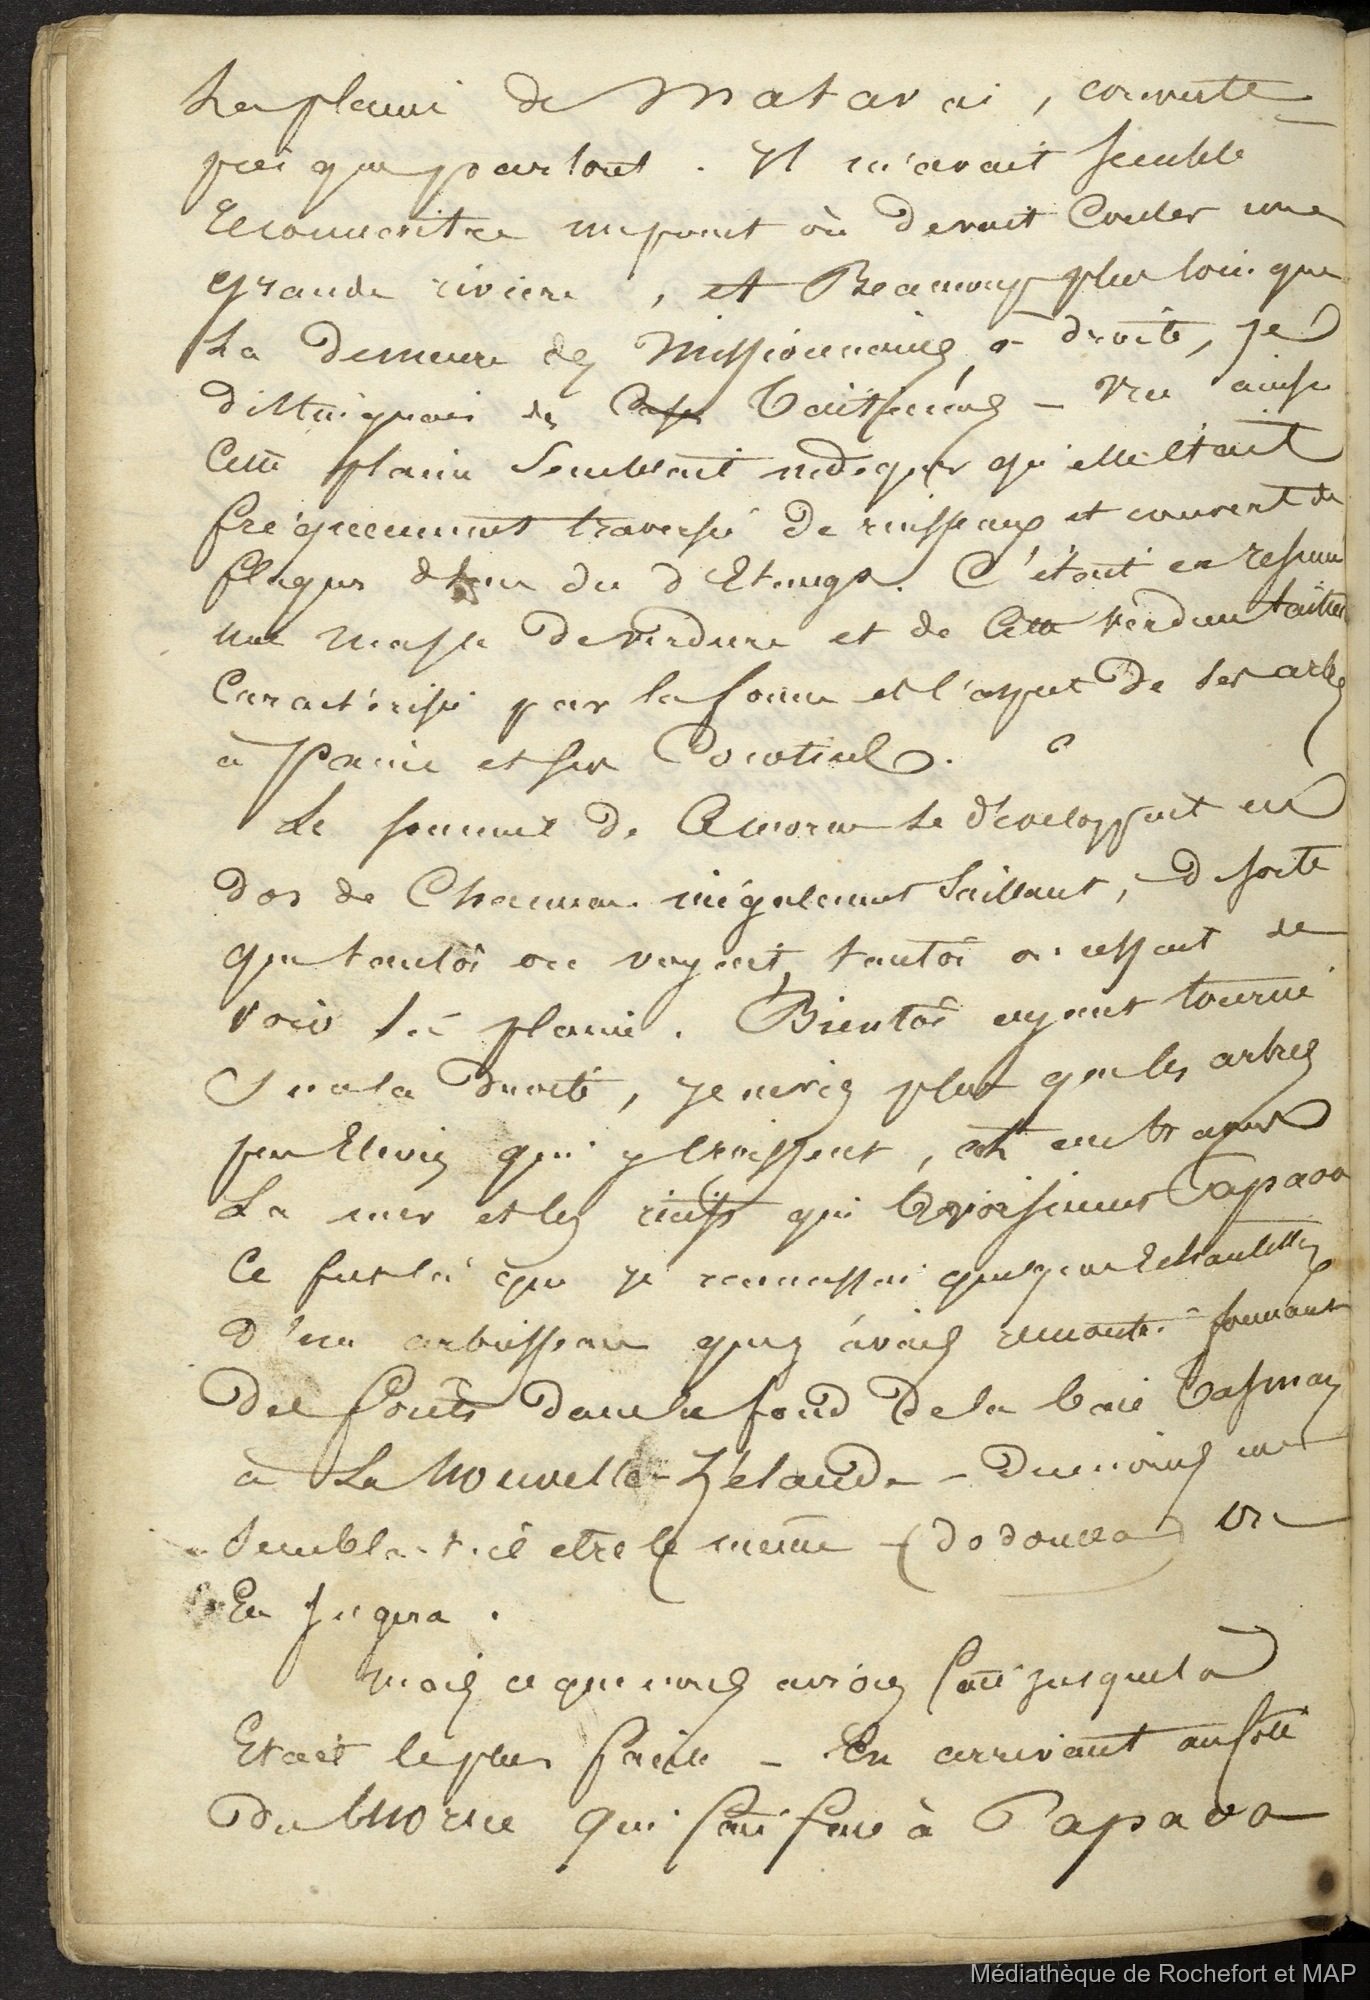 La plaine de Matavai, couverte
plus que partout. Il m'avait semblé
Reconnaitre un point où devait Couler une
grande rivière, et Beaucoup plus loin que
La demeure des Missionnaires, à droite, je
distinguais des Cases Taïtiennes – Vue ainsi
Cette plaine Semblait indiquer qu'elle était
fréquemment traversée de ruisseaux et couverte de
flaques d'eau ou d'Etangs. C'était en résumé
une masse de verdure et de Cette verdure taïtienne
Caractérisée par la forme et l'aspect de ses arbres
à Pain et ses Cocotiers.
Le sommet de Ce morne se développait en
dos de Chameau inégalement Saillant, de sorte
que tantôt on voyait, tantôt on cessait de
voir la plaine. Bientôt ayant tourné
Sur la droite, je ne vis plus que les arbres
peu Elevés qui y croissent, et ensuite après
La mer et les récifs qui avoisinent Papaoa
Ce fut là que je ramassai quelques Echantillons
d'un arbrisseau que j'avais remonté formant
Des forêts dans le fond de la baie Tasman
à La Nouvelle-Zélande – Du moins me
Semblait-il etre le même – (dodonea) On
En jugera.
Mais ce que nous avions fait jusque là
Etait le plus facile – En arrivant au
Du Morne qui fait face à Papaoa